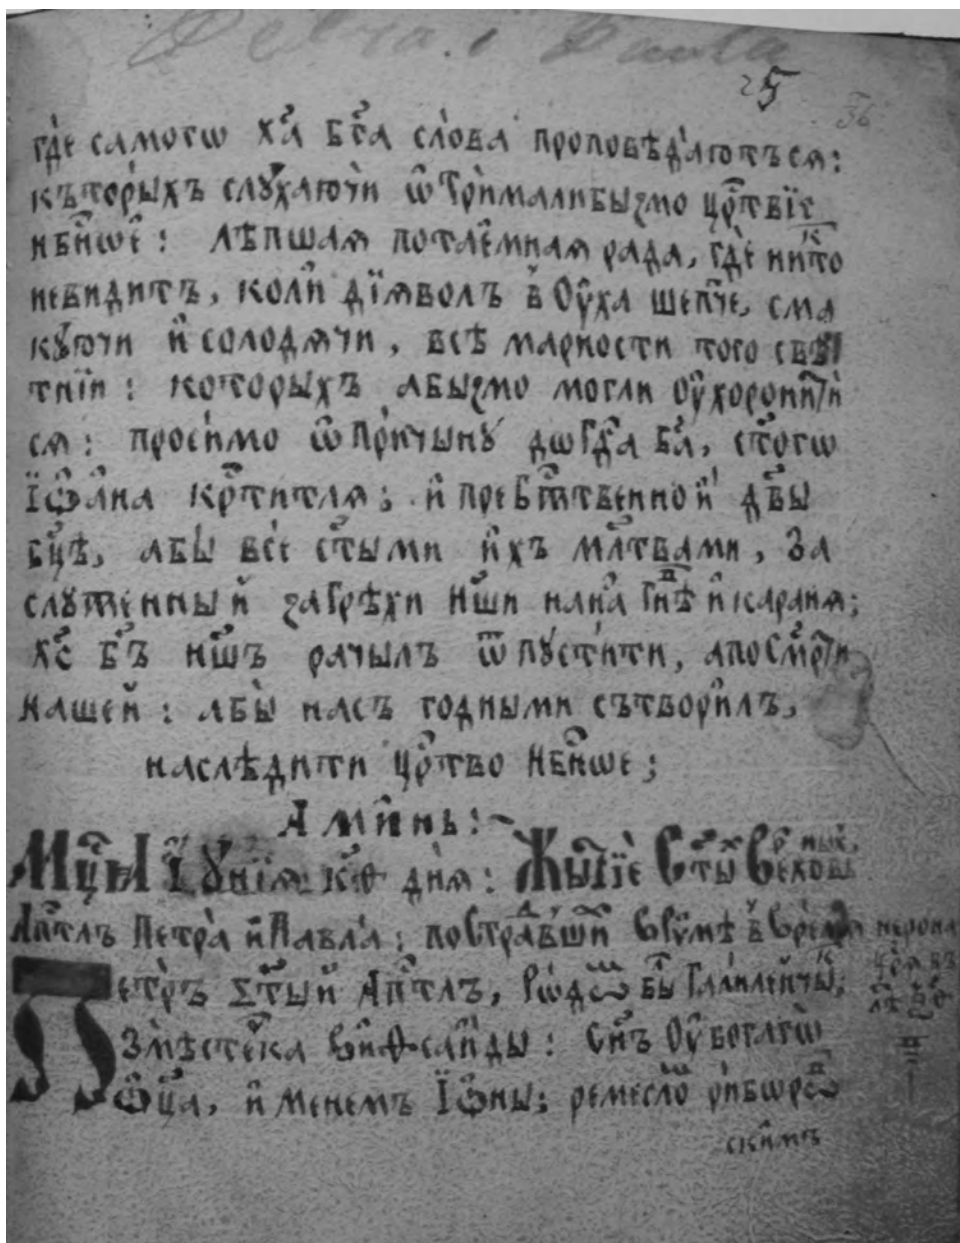 Petra i Pavla
25
36
гдѐ самогѡ хⷭ҇а бг҃а сло́ва проповѣда́ютъся:
къторыхъ слꙋхаючи ѿтрималибысмо црⷭ҇твїе
нбⷭ҇ноѥ: лѣпшая потаємная рада, гдѐ нихто
невидитъ, коли дїяволъ в оу҆ха шепче, сма
кꙋючи и҆ солодячи, всѣ марности того свѣ
тнїи: которыхъ абысмо могли оу҆хоронити
ся: просимо ѡ҆ причынꙋ дѡ гдⷭ҇а бг҃а, ст҃огѡ
їѡ҆ана крⷭ҇тителя; и҆ пребл҃гⷭ҇твенной дв҃ы
бц҃ѣ, абы̀ всѐ ст҃ыми и҆хъ мл҃твами, за
слꙋженный за грѣхи нш҃и на на́ гнѣ и҆ караня;
хⷭ҇ бг҃ъ нш҃ъ рачылъ ѿпꙋстити, а по смр҃ти
нашей: абы̀ насъ годными сътвори́лъ,
наслѣдити црⷭ҇тво нбⷭ҇ноє;
Аминь:~
Мцⷭ҇а Їꙋнїя к҃ѳ дня: Жытїѐ Ст҃ыⷯ Верⷯховныⷯ
Апⷭ҇тлъ Петра̀ и҆ Павла̀: пострадавшиⷯ в Римѣ в время нерона
цр҃я въ
Петръ Ст҃ый Апⷭ҇тлъ, рѡдѡⷨ бы Галилейчыкъ;
з мѣстечка Виѳсаиды: Сн҃ъ оу҆богагѡ
ѡ҆ц҃а, и҆менемъ Їѡ҆ны; ремесломъ рибѡрѡⷡ
скимъ